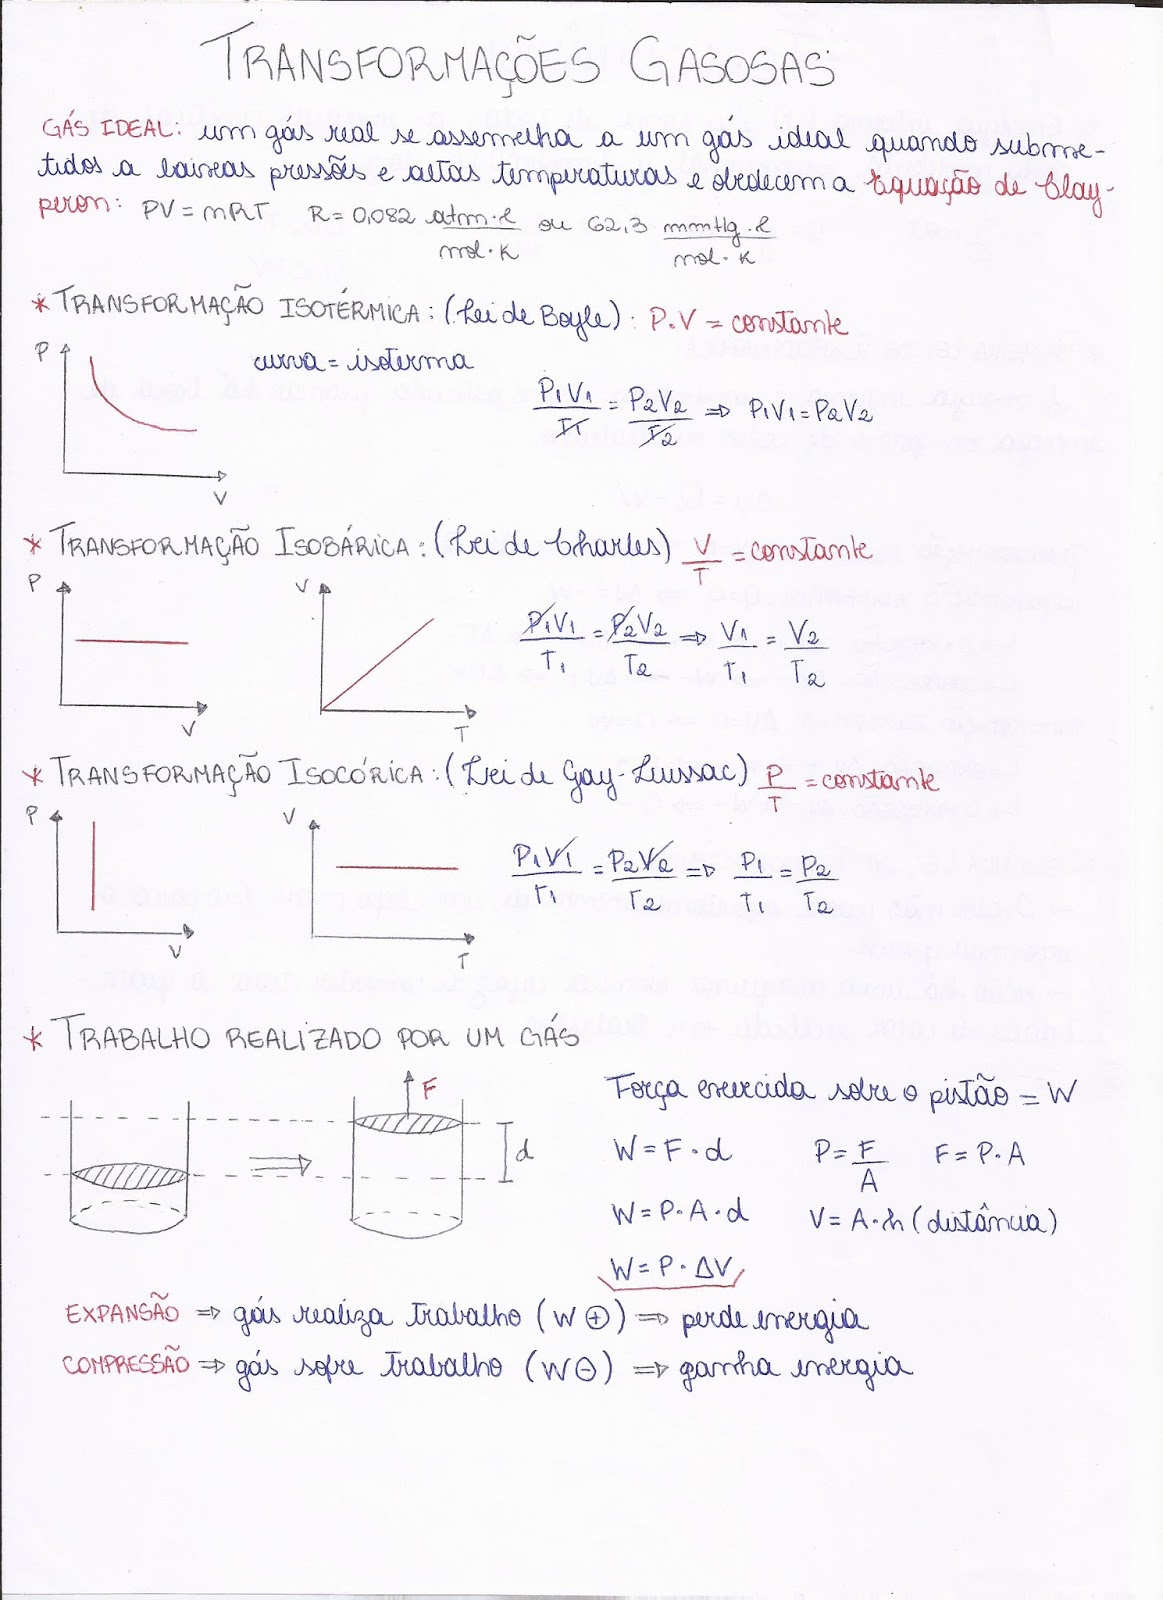 TRANSFORMAÇÕES GASOSAS
GÁS IDEAL: um gás real se assemelha a um gás ideal quando subme-
tidos a baixas pressões e altas temperaturas e obedecem a Equação de Clay-
peron: PV = nRT R = 0,082 atm·l/mol·K ou 62,3 mmHg·l/mol·K
* TRANSFORMAÇÃO ISOTÉRMICA: (Lei de Boyle): P.V = constante
P
curva = isoterma
P1V1/T1 = P2V2/T2 ⇒ P1V1 = P2V2
V
* TRANSFORMAÇÃO ISOBÁRICA: (Lei de Charles) V/T = constante
P V
P1V1/T1 = P2V2/T2 ⇒ V1/T1 = V2/T2
V T
* TRANSFORMAÇÃO ISOCÓRICA: (Lei de Gay-Lussac) P/T = constante
P V
P1V1/T1 = P2V2/T2 ⇒ P1/T1 = P2/T2
V T
* TRABALHO REALIZADO POR UM GÁS
F
d
Força exercida sobre o pistão = W
W = F·d P = F/A F = P·A
W = P·A·d V = A·h (distância)
W = P·ΔV
EXPANSÃO ⇒ gás realiza trabalho (W ⊕) ⇒ perde energia
COMPRESSÃO ⇒ gás sofre trabalho (W ⊖) ⇒ ganha energia